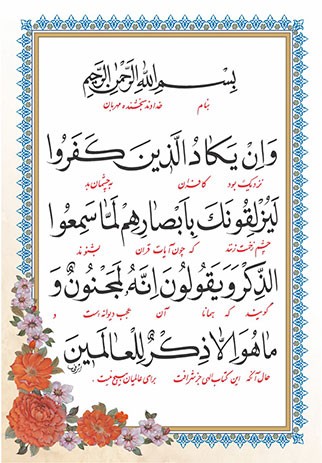 بِسْمِ اللهِ الرَّحْمٰنِ الرَّحیمِ
بنام خداوند بخشنده مهربان
وَاِنْ يَكادُ الَّذينَ كَفَرُوا
نزدیک بود کافران به چشمان بد
لَيُزْلِقُونَكَ بِاَبْصارِهِمْ لَمّا سَمِعُوا
چشم زخمت زنند که چون آیات قرآن بشنوند
الذِّكْرَ وَ يَقُولُونَ اِنَّهُ لَمَجْنُونٌ وَ
گویند که همانا آن عجب دیوانه است و
ما هُوَ اِلّا ذِكْرٌ لِلْعالَمينَ
حال آنکه این کتاب الهی جز شرافت برای عالمیان هیچ نیست.